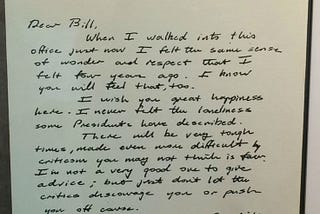 Dear Bill,
When I walked into this
office just now I felt the same sense
of wonder and respect that I
felt four years ago. I know
you will feel that, too.
I wish you great happiness
here. I never felt the loneliness
some Presidents have described.
There will be very tough
times, made even more difficult by
criticism you may not think is fair.
I'm not a very good one to give
advice; but just don't let the
critics discourage you or push
you off course.